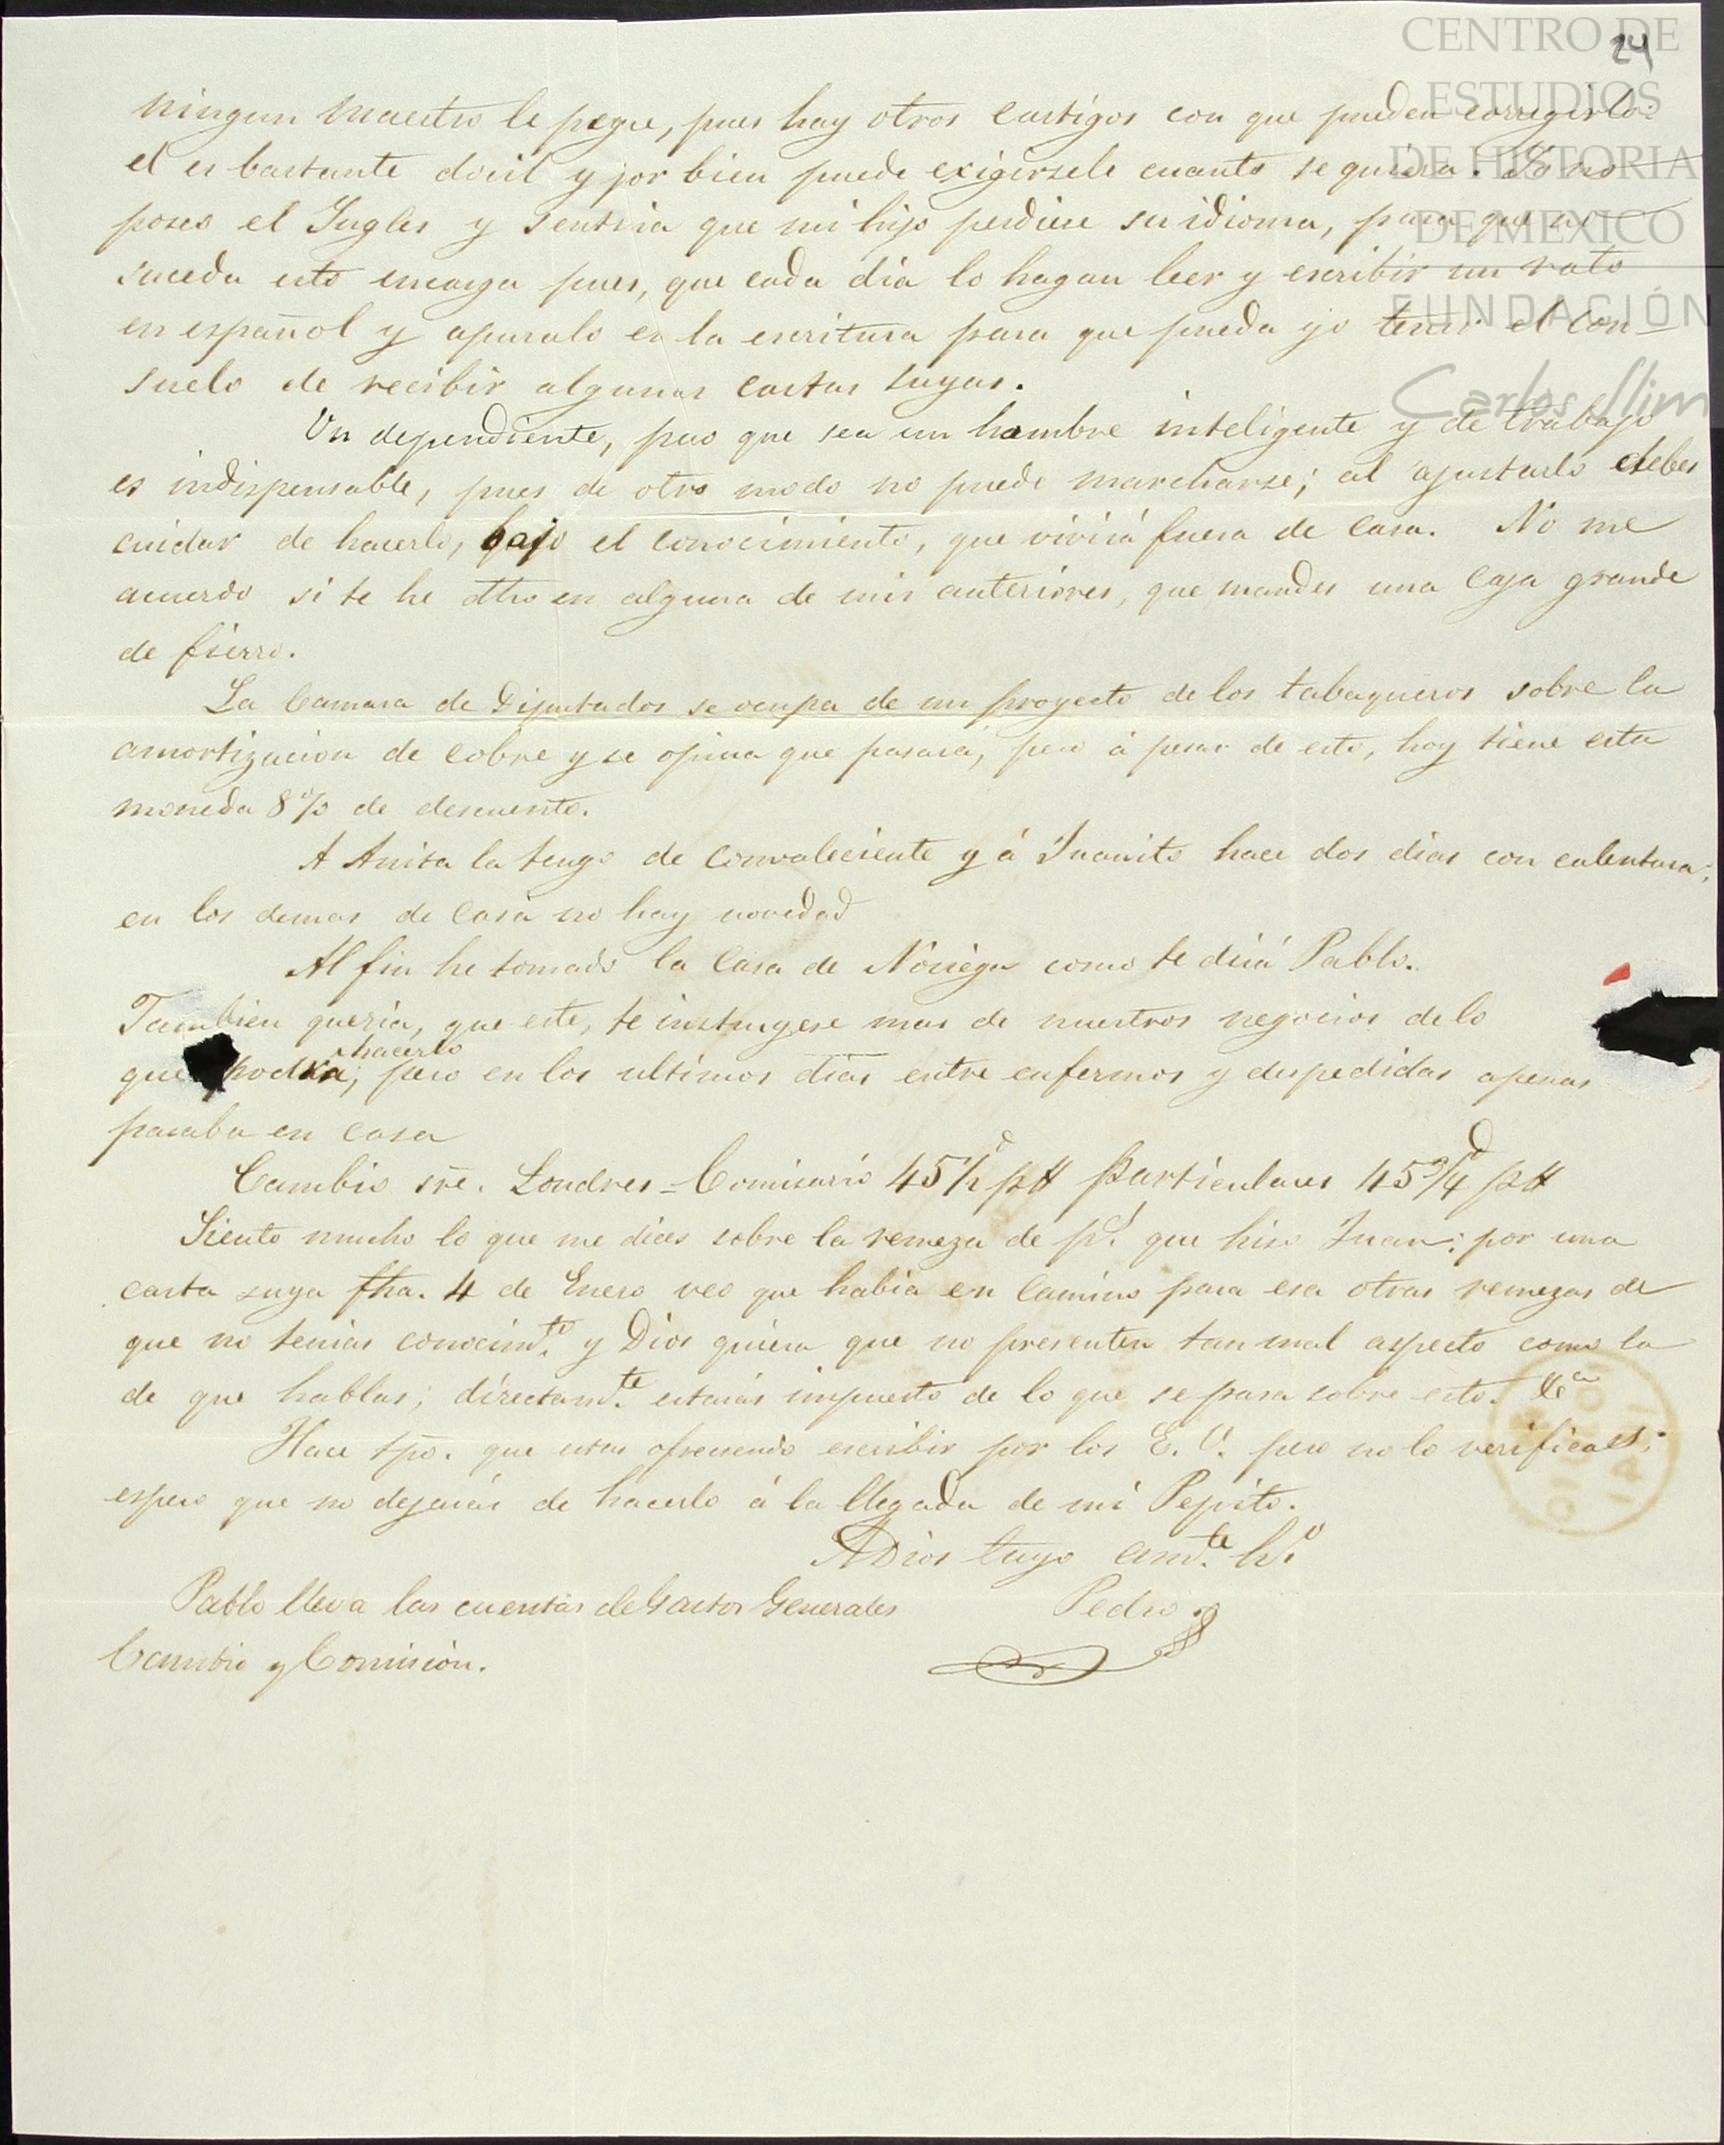 24
CENTRO DE
ESTUDIOS
DE HISTORIA
DE MEXICO
FUNDACIÓN
Carlos Slim
ningun maestro le pegue, pues hay otros castigos con que pueden corregirlo:
el es bastante docil y por bien puede exigirsele cuanto se quiera. Yo no
poseo el Ingles y sentiria que mi hijo perdiese su idioma, para que no
suceda esto encarga pues, que cada dia lo hagan leer y escribir un rato
en español y apuralo en la escritura para que pueda yo tener el con-
suelo de recibir algunas cartas suyas.
Un dependiente, pero que sea un hombre inteligente y de trabajo
es indispensable, pues de otro modo no puede marcharse; al ajustarlo debes
cuidar de hacerlo, bajo el conocimiento, que vivirá fuera de casa. No me
acuerdo si te he dho en alguna de mis anteriores, que mandes una caja grande
de fierro.
La Camara de Diputados se ocupa de un proyecto de los tabaqueros sobre la
amortizacion de cobre y se opina que pasará, pero á pesar de esto, hoy tiene esta
moneda 8% de descuento.
A Anita la tengo de convaleciente y á Juanito hace dos dias con calentura;
en los demas de casa no hay novedad
Al fin he tomado la casa de Noriega como te dirá Pablo.
Tambien queria, que este, te instruyese mas de nuestros negocios de lo
que podra hacerlo; pero en los ultimos dias entre enfermos y despedidas apenas
paraba en casa
Cambio sre. Londres = Comisario 45½ᵈ p$ Particulares 45¾ᵈ p$
Siento mucho lo que me dices sobre la remeza de pˢ. que hiso Juan: por una
carta suya fha. 4 de Enero veo que habia en camino para esa otras remezas de
que no tenias conocimᵗᵒ. y Dios quiera que no presenten tan mal aspecto como la
de que hablas; directamᵗᵉ. estarás impuesto de lo que se pasa sobre esto. &ᵃ
Hace tpo. que estas ofreciendo escribir por los E. U. pero no lo verificas;
espero que no dejarás de hacerlo á la llegada de mi Pepito.
ADios tuyo amᵗᵉ. hº.
Pedro
Pablo lleva las cuentas de Gastos Generales
Cambio y Comision.